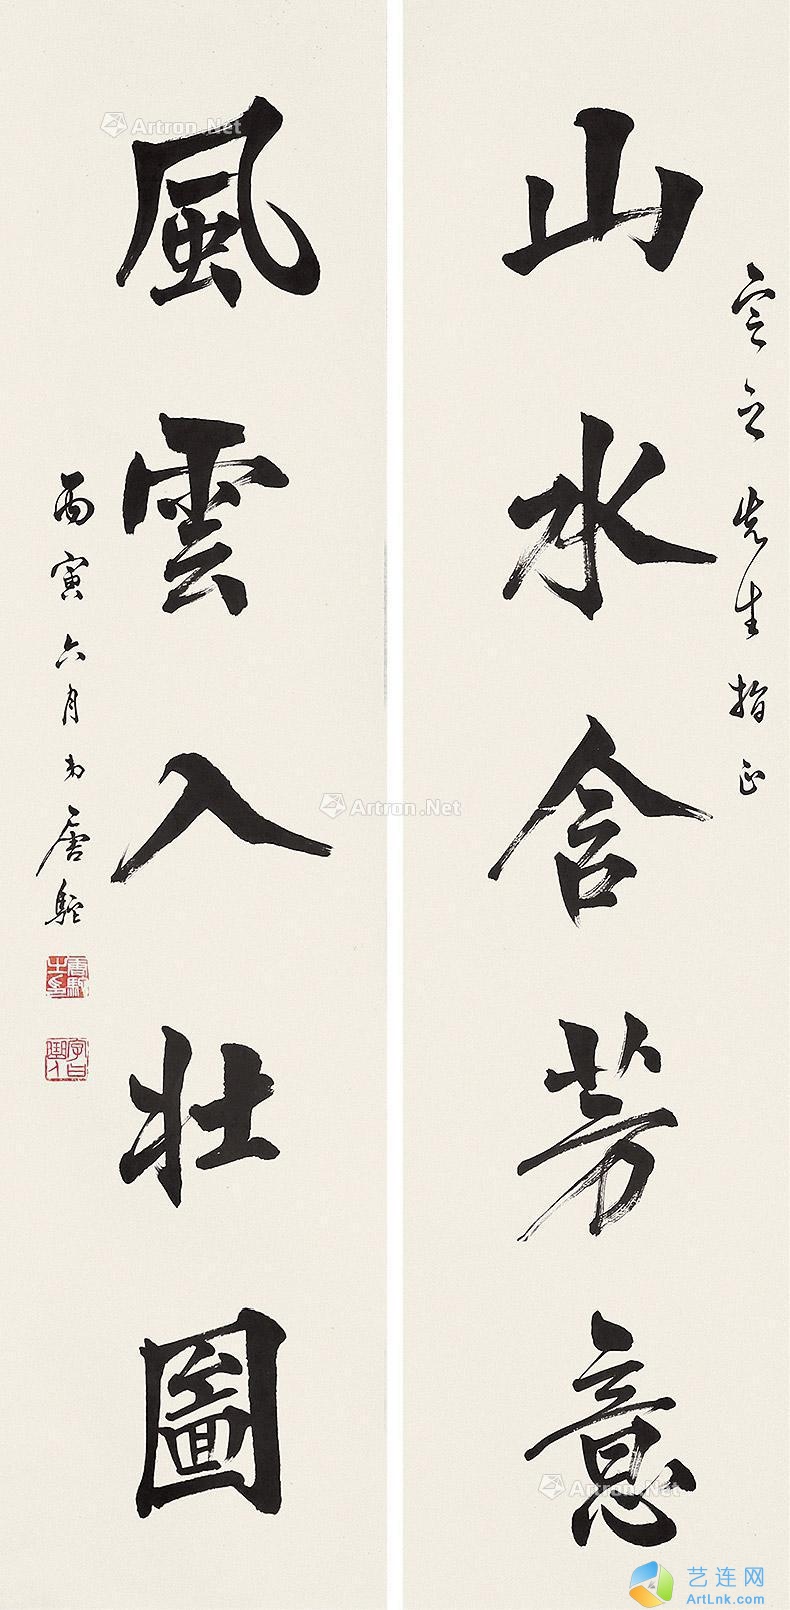 之先生指正
山水含芳意
風雲入壯圖
丙寅六月弟唐駝
Artron.Net
Artron.Net
Artron.Net
艺连网
ArtLnk.com